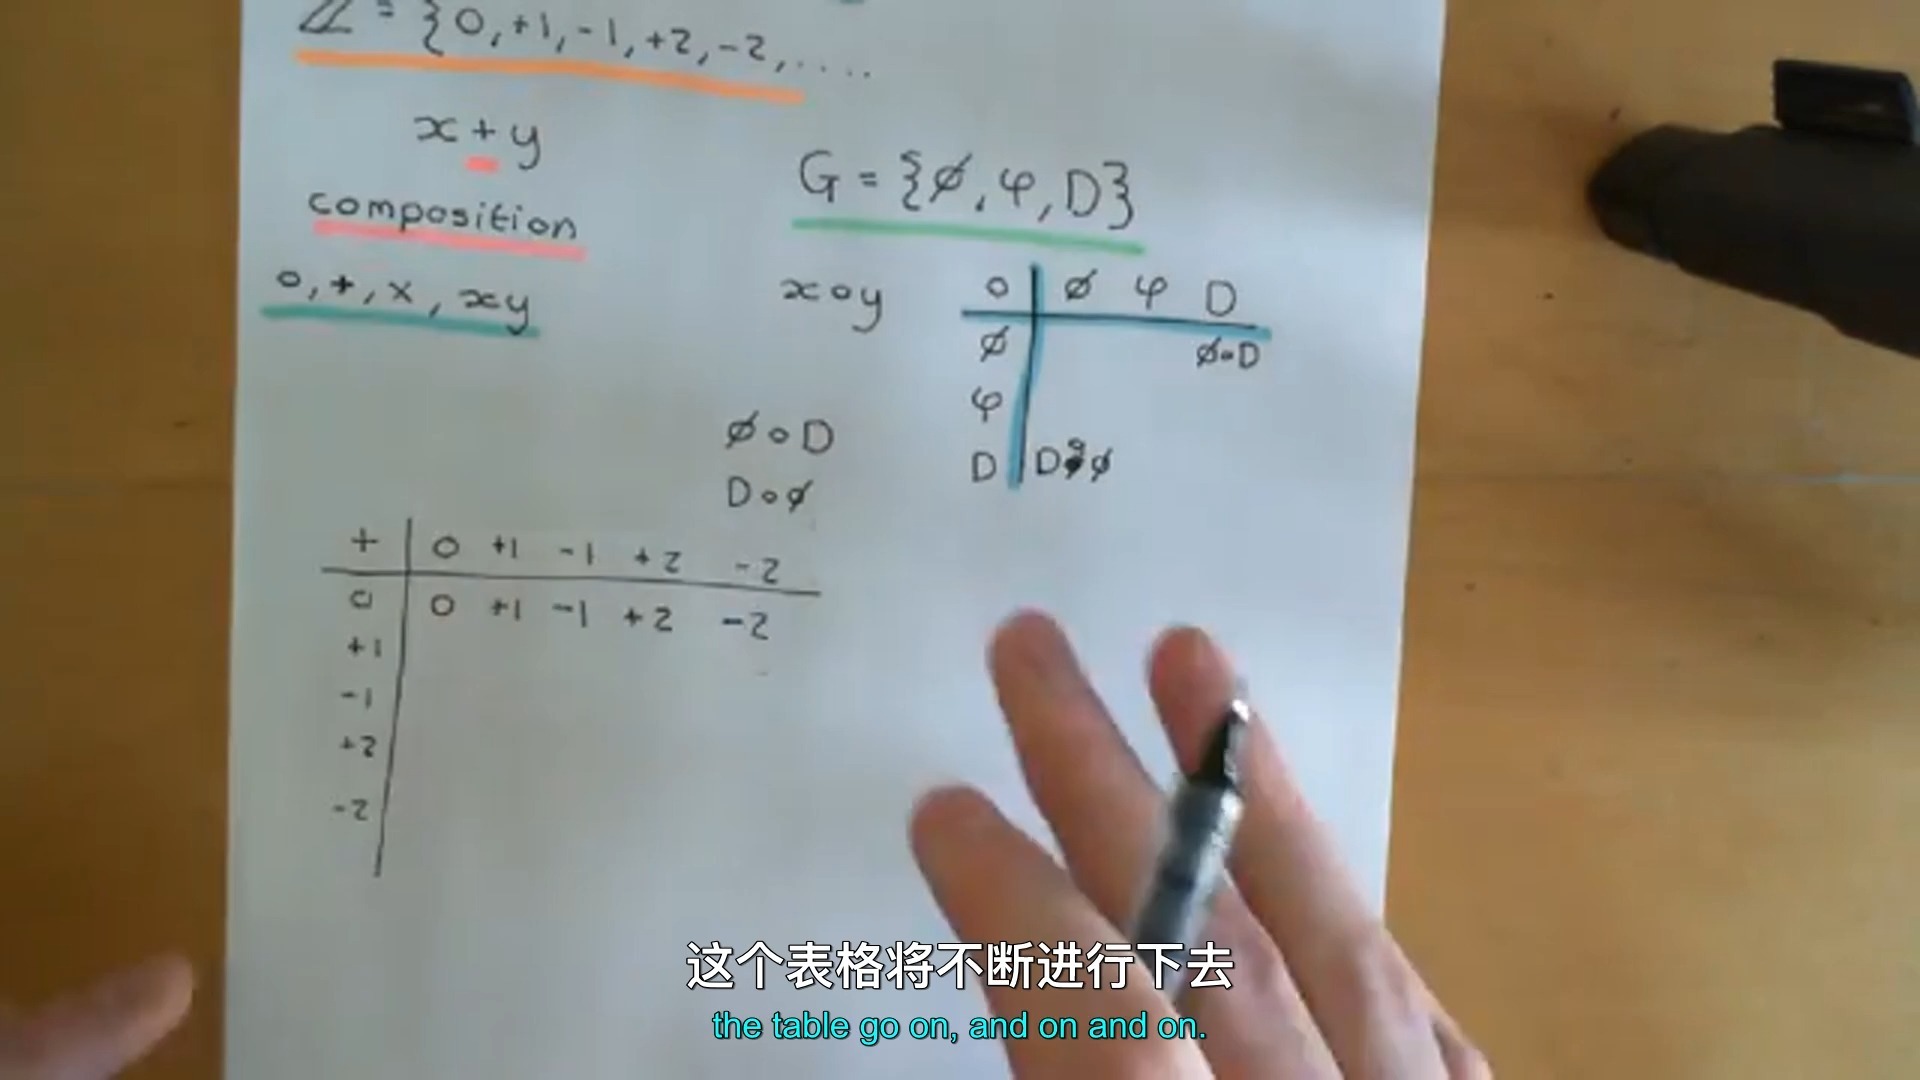 ℤ = {0, +1, -1, +2, -2, ....
x + y
composition
o, +, x, xy
G = {ø, φ, D}
x∘y
∘ ø φ D
ø ø∘D
φ
D D∘ø
ø∘D
D∘ø
+ 0 +1 -1 +2 -2
0 0 +1 -1 +2 -2
+1
-1
+2
-2
这个表格将不断进行下去
the table go on, and on and on.